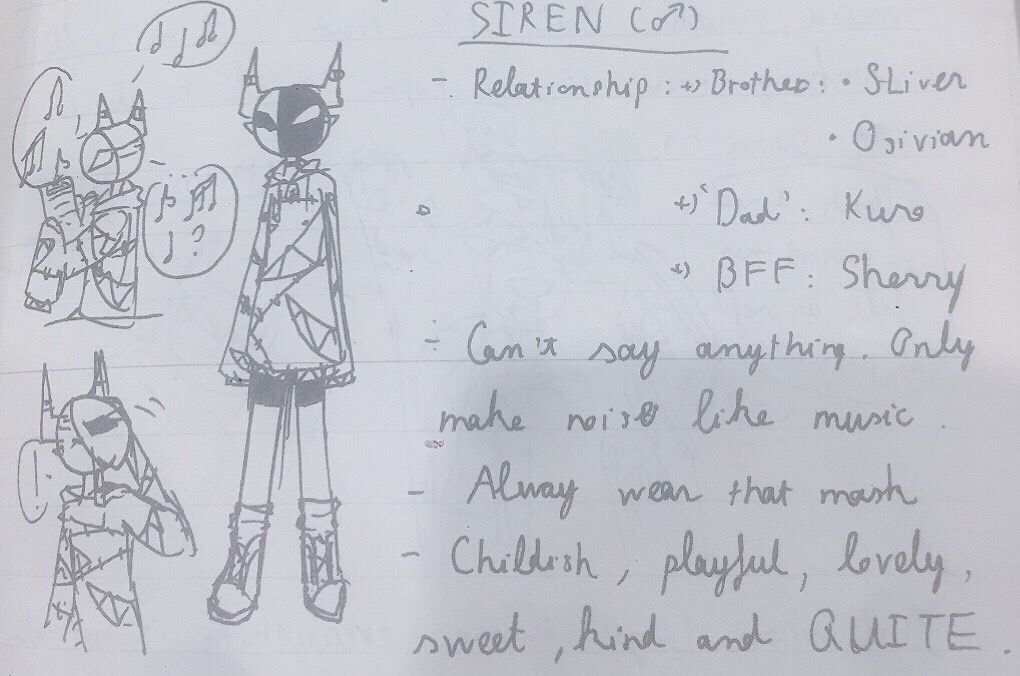 SIREN (♂)
- Relationship : +) Brother : • SLiver
• Ogivian
+) 'Dad' : Kuro
+) BFF : Sherry
- Can't say anything. Only
make noise like music.
- Alway wear that mask
- Childish, playful, lovely,
sweet, kind and QUITE.
?
!